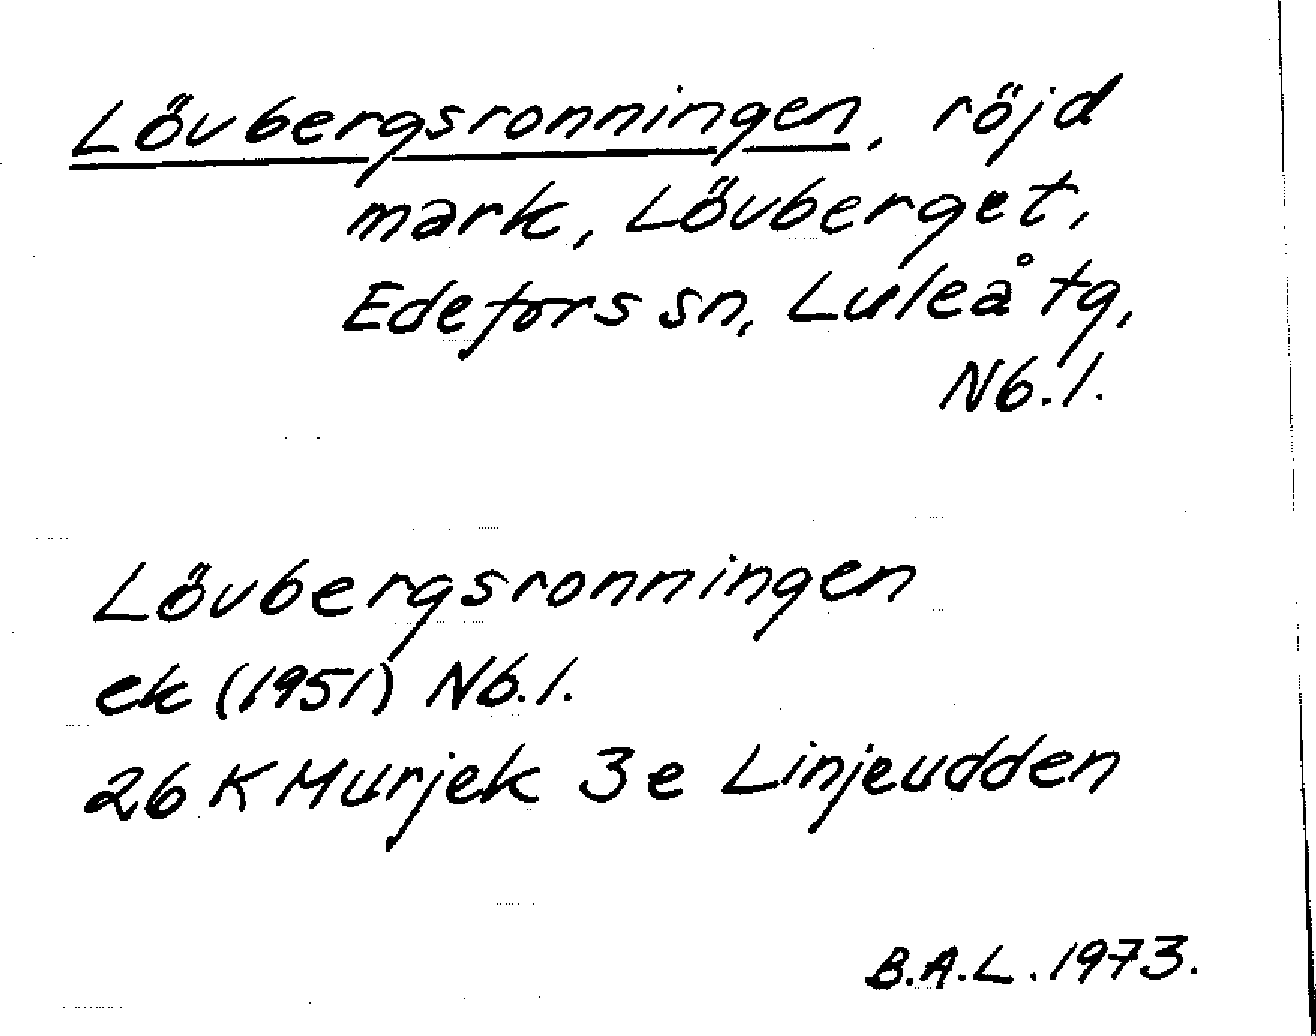 Lövbergsronningen, röjd
mark, Lövberget,
Edefors sn, Luleå tg,
Nb.l.
Lövbergsronningen
ek (1951) Nb.l.
26 K Murjek 3e Linjeudden
B.A.L. 1973.